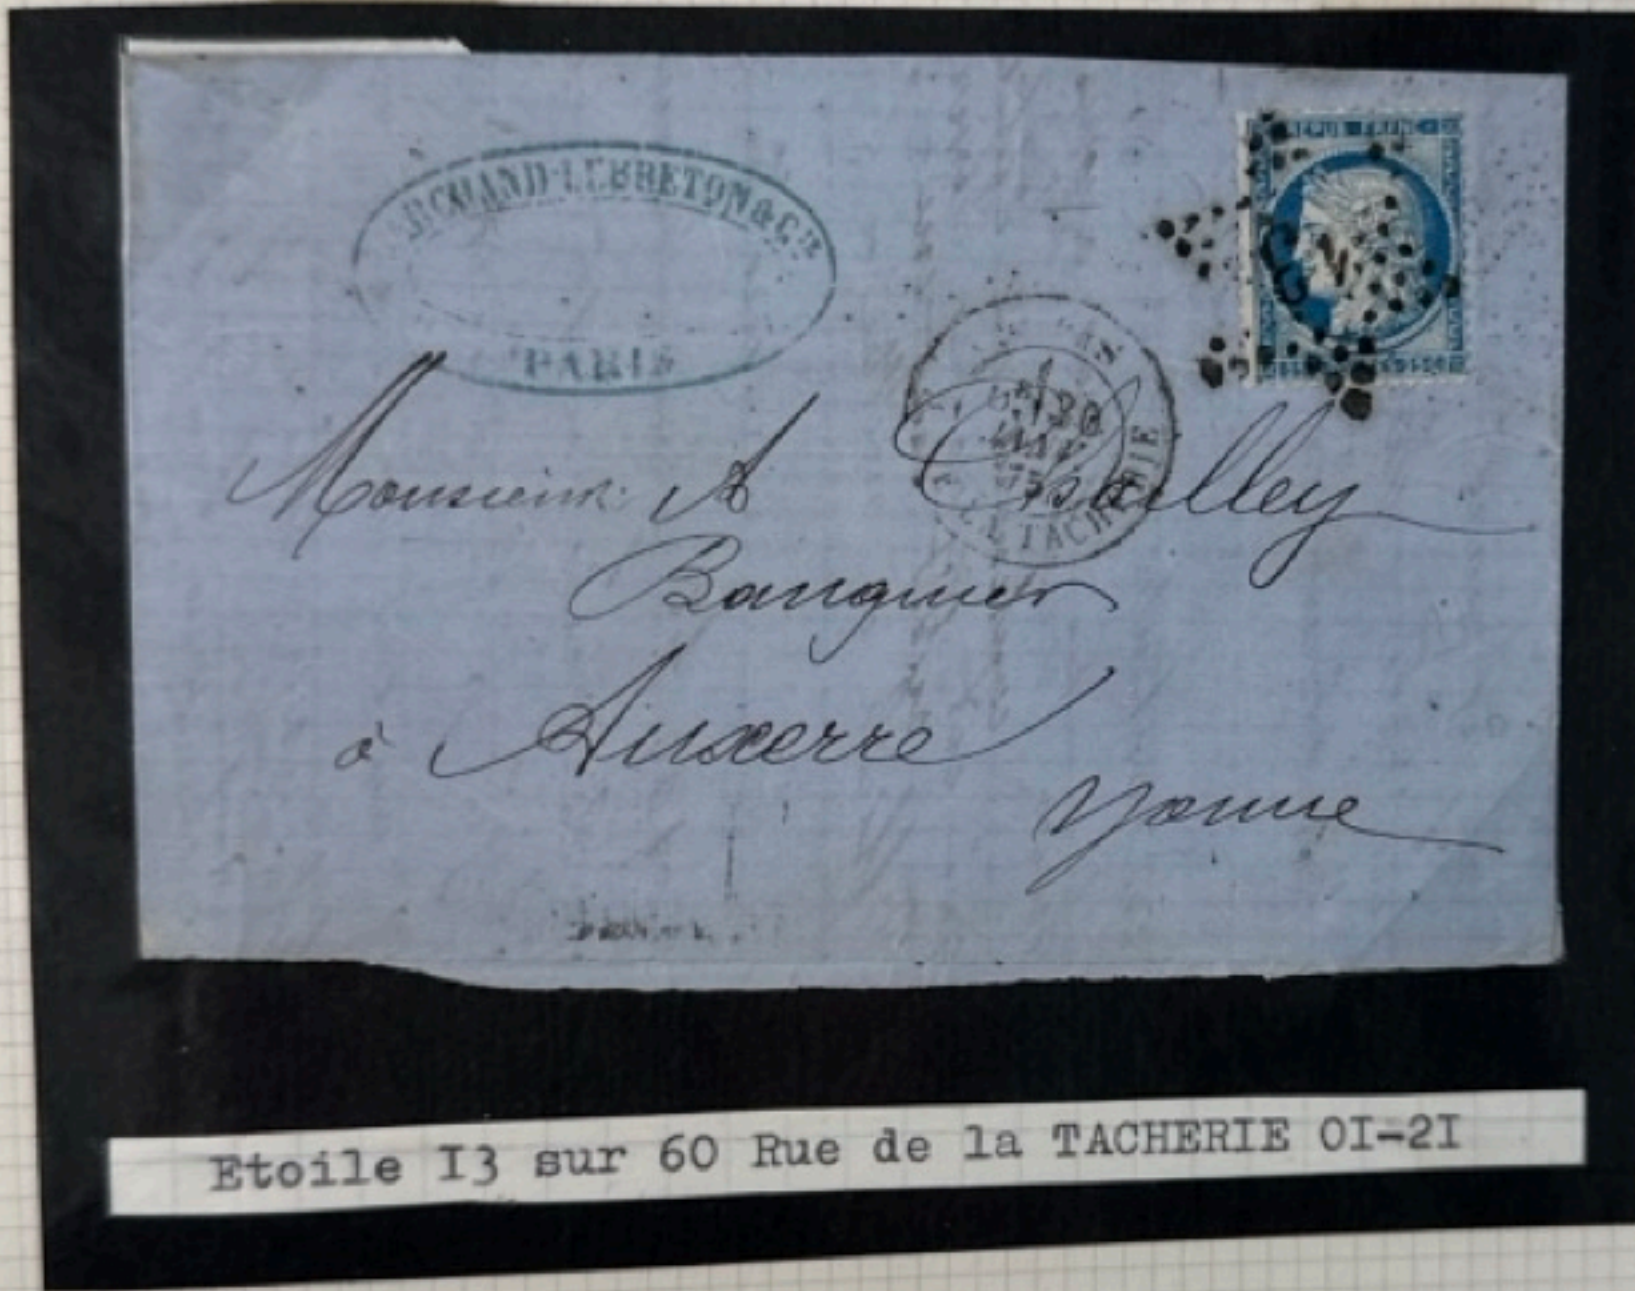 ARCHAND-LEBRETON & Cie
PARIS
REPUB FRANC
LA TACHERIE
Monsieur A Challey
Banquier
à Auxerre
Yonne
Etoile I3 sur 60 Rue de la TACHERIE OI-2I